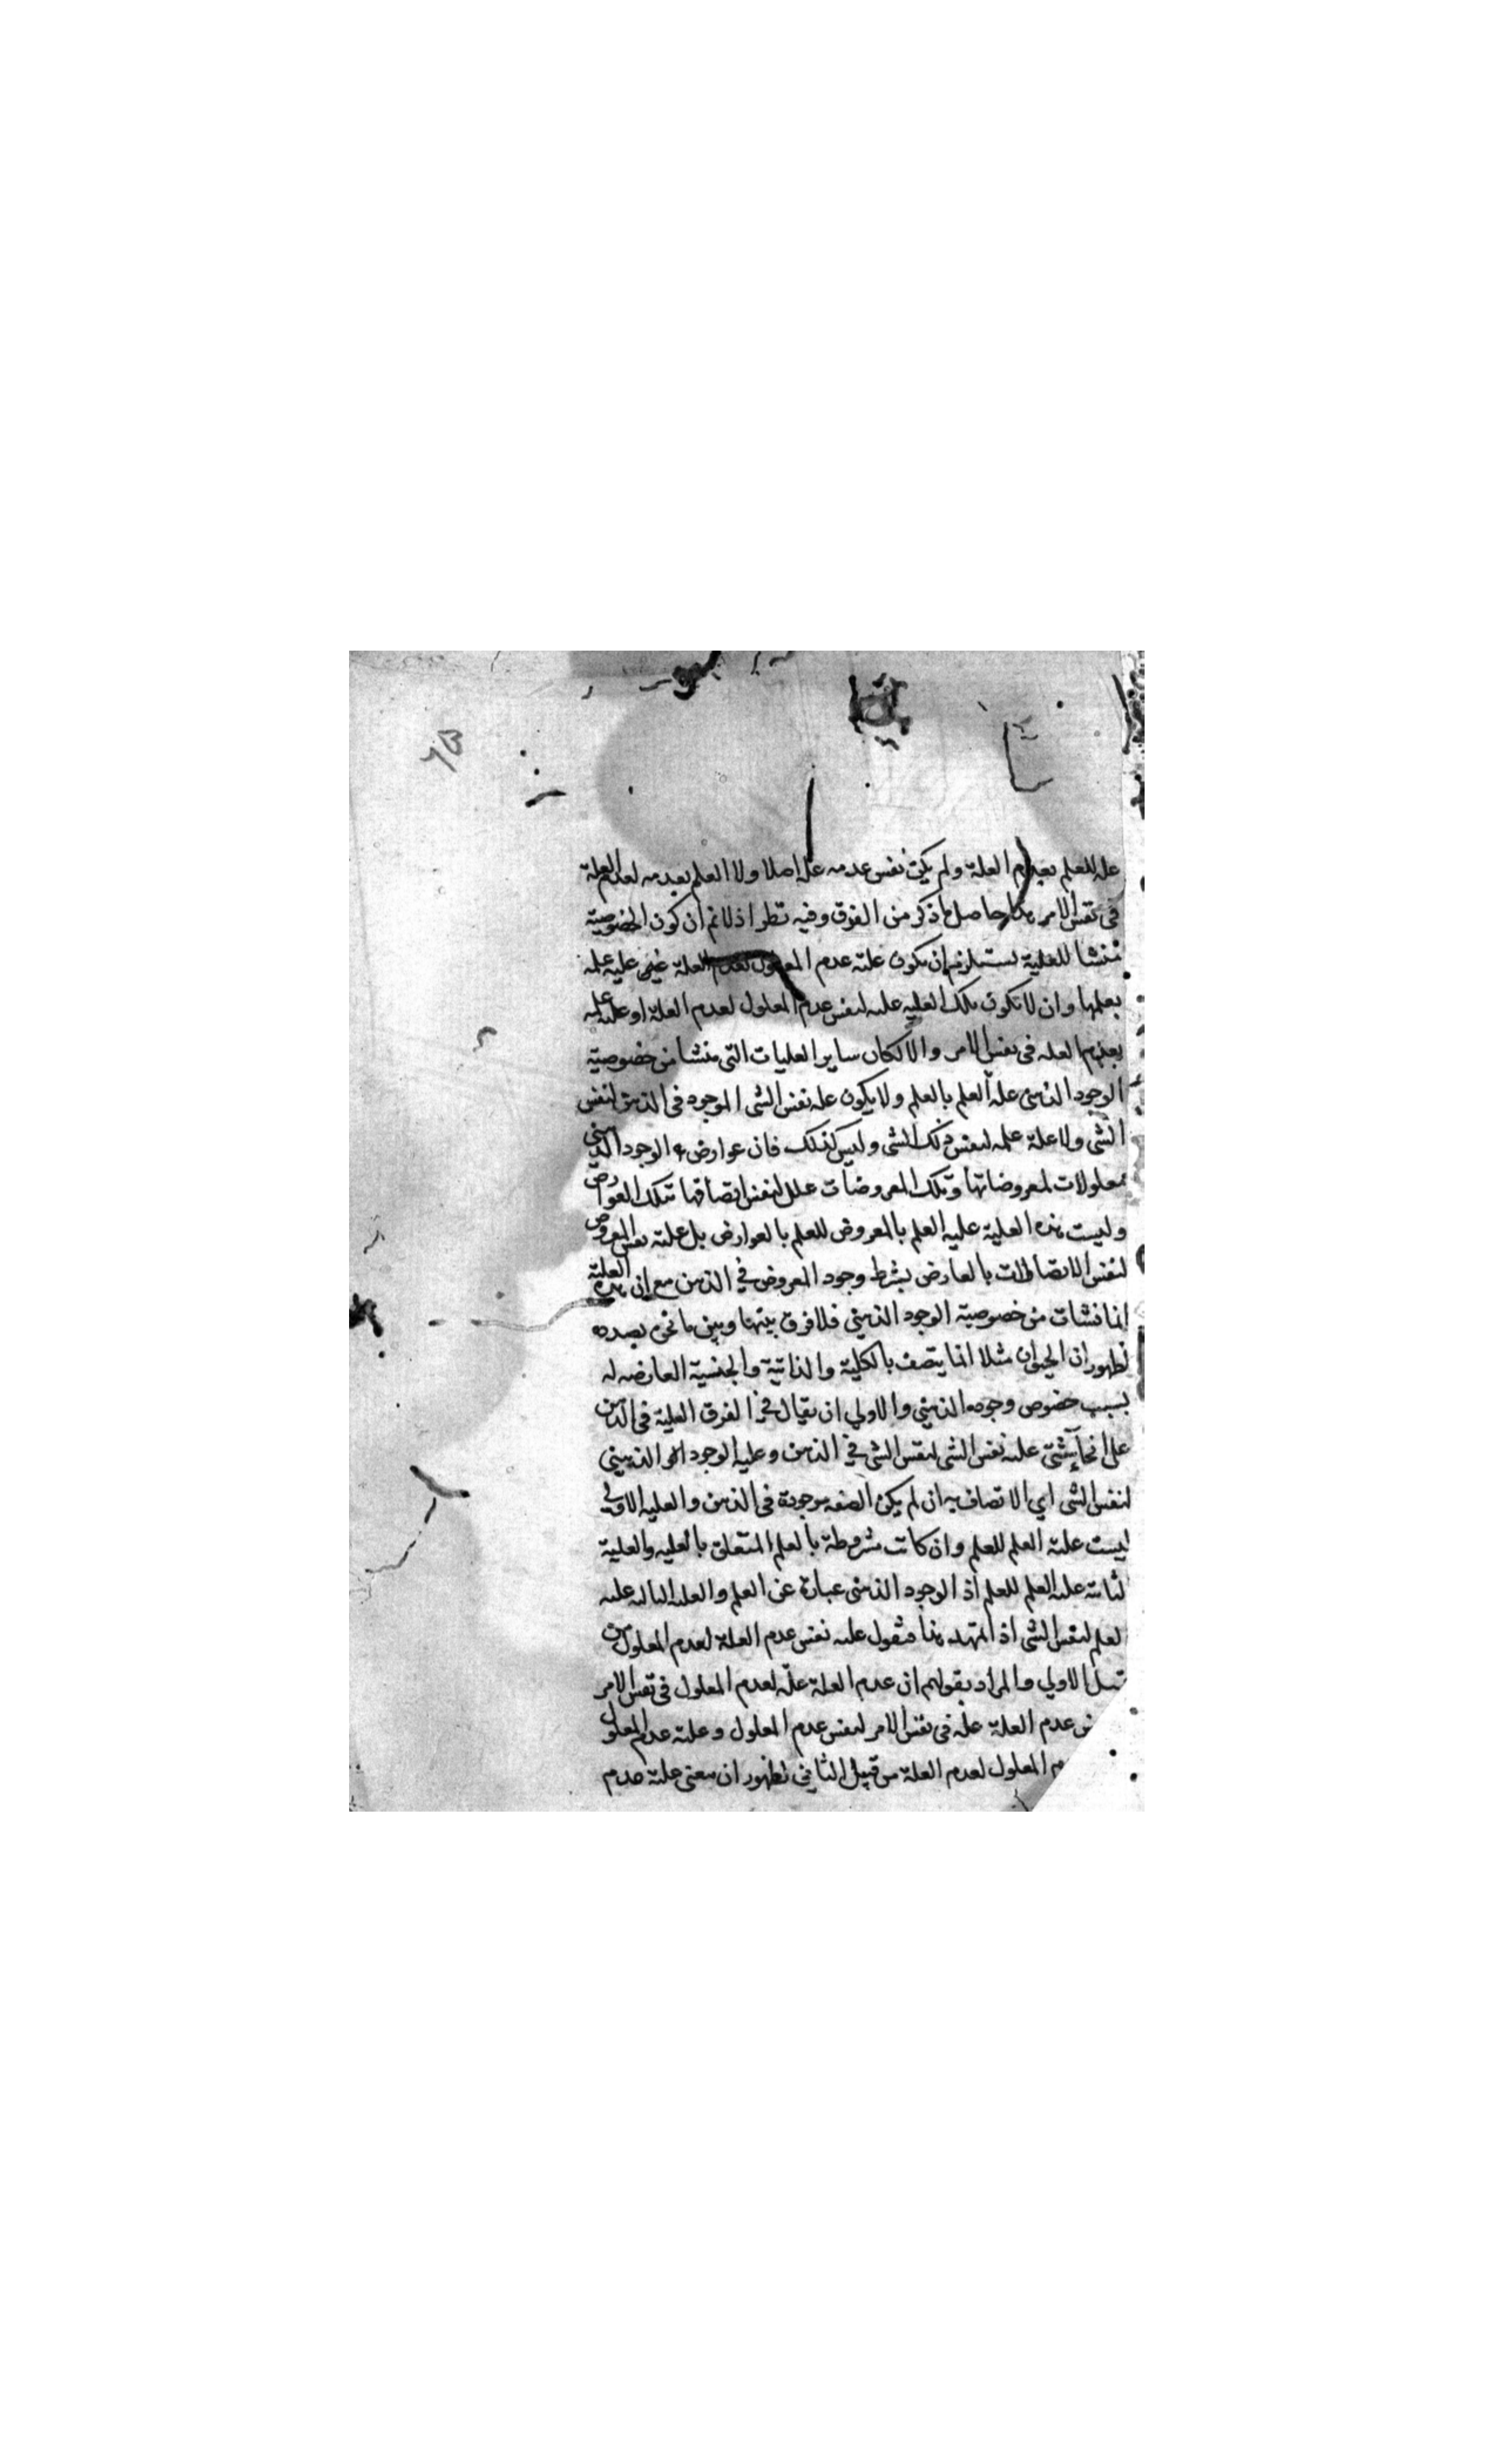 علة للعلم بعدم العلة ولم يكن نفس عدمه علة اصلا ولا العلم بعدمه لعدم العلة
في نفس الامر هذا حاصل ما ذكر من الفرق وفيه نظر اذ لا نم ان كون الخصوصية
منشا للعلية يستلزم ان يكون علية عدم المعلول لعدم العلة عين علية علمه
بعلمها وان لا تكون تلك العلية علية لنفس عدم المعلول لعدم العلة او علية علمه
بعدم العلة في نفس الامر والا لكان ساير العليات التي منشا من خصوصية
الوجود الذهني علة العلم بالعلم ولا يكون علة نفس الشى الموجود في الذهن لنفس
الشى ولا علة علمه لنفس ذلك الشى وليس كذلك فان عوارض الوجود الذهني
معلولات لمعروضاتها وتلك المعروضات علل لنفس اتصافها بتلك العوارض
وليست هذه العلية علية العلم بالمعروض للعلم بالعوارض بل علية نفس المعروض
لنفس الاتصاف بالعارض بشرط وجود المعروض في الذهن مع ان هذه العلية
انما نشات من خصوصية الوجود الذهني فلا فرق بينها وبين ما نحن بصدده
لظهور ان الحيوان مثلا انما يتصف بالكلية والذاتية والجنسية العارضه له
بسبب خصوص وجوده الذهني والاولي ان يقال في الفرق العلية في الذهن
على انحاء شتى علية نفس الشى لنفس الشى في الذهن وعلية الوجود الذهني
لنفس الشى اي الاتصاف به ان لم يكن الصفه موجودة في الذهن والعليه الاولى
ليست علية العلم للعلم وان كانت مشروطة بالعلم المتعلق بالعليه والعلية
الثانية علية العلم للعلم اذ الوجود الذهني عبارة عن العلم والعلية الثالثة علية
العلم لنفس الشى اذا تمهد هذا فنقول علية نفس عدم العلة لعدم المعلول من
قبيل الاولي والمراد بقولهم ان عدم العلة علة لعدم المعلول في نفس الامر
عدم العلة علة في نفس الامر لنفس عدم المعلول وعلية عدم المعلول
المعلول لعدم العلة من قبيل الثاني لظهور ان معنى علية عدم